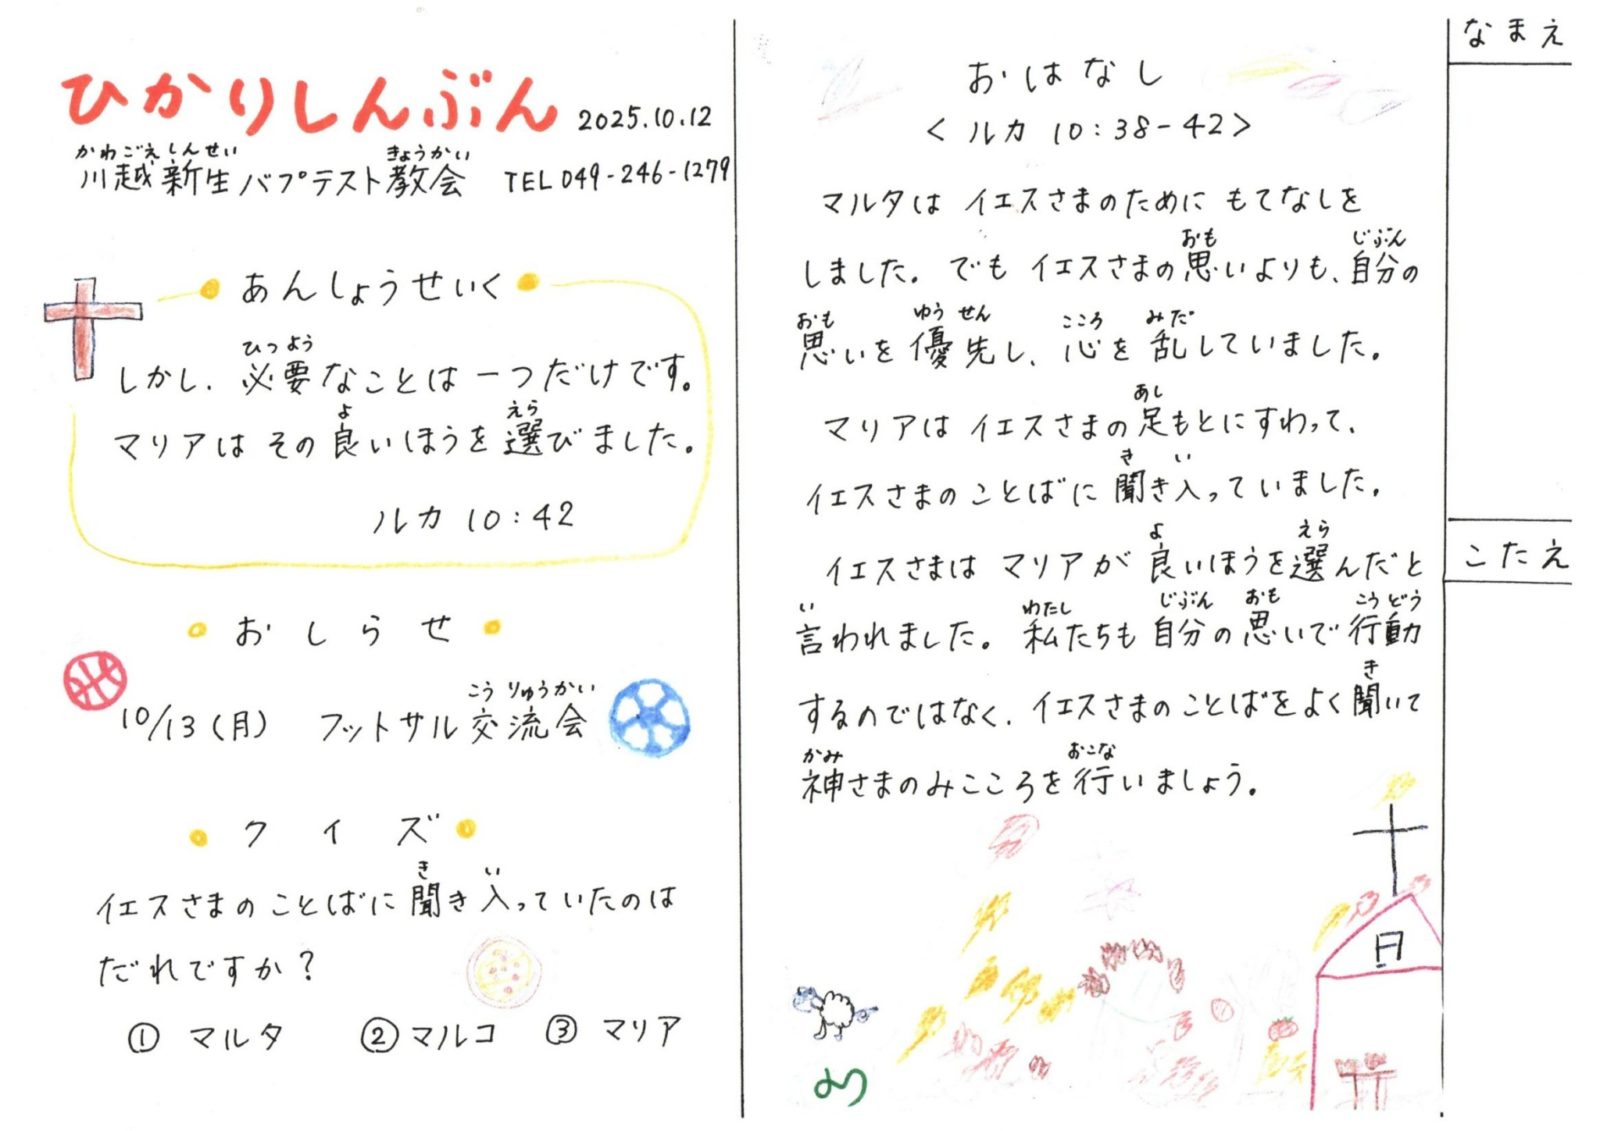 ひかりしんぶん 2025.10.12
かわごえしんせい きょうかい
川越新生バプテスト教会 TEL 049-246-1279
あんしょうせいく
ひつよう
しかし、必要なことは一つだけです。
よ えら
マリアは その良いほうを選びました。
ルカ 10:42
おしらせ
こうりゅうかい
10/13(月) フットサル交流会
クイズ
き い
イエスさまのことばに聞き入っていたのは
だれですか?
① マルタ ② マルコ ③ マリア
おはなし
<ルカ 10:38-42>
マルタは イエスさまのために もてなしを
おも じぶん
しました。でも イエスさまの思いよりも、自分の
おも ゆうせん こころ みだ
思いを優先し、心を乱していました。
あし
マリアは イエスさまの足もとにすわって、
き い
イエスさまのことばに聞き入っていました。
よ えら
イエスさまは マリアが良いほうを選んだと
い わたし じぶん おも こうどう
言われました。私たちも自分の思いで行動
き
するのではなく、イエスさまのことばをよく聞いて
かみ おこな
神さまのみこころを行いましょう。
なまえ
こたえ